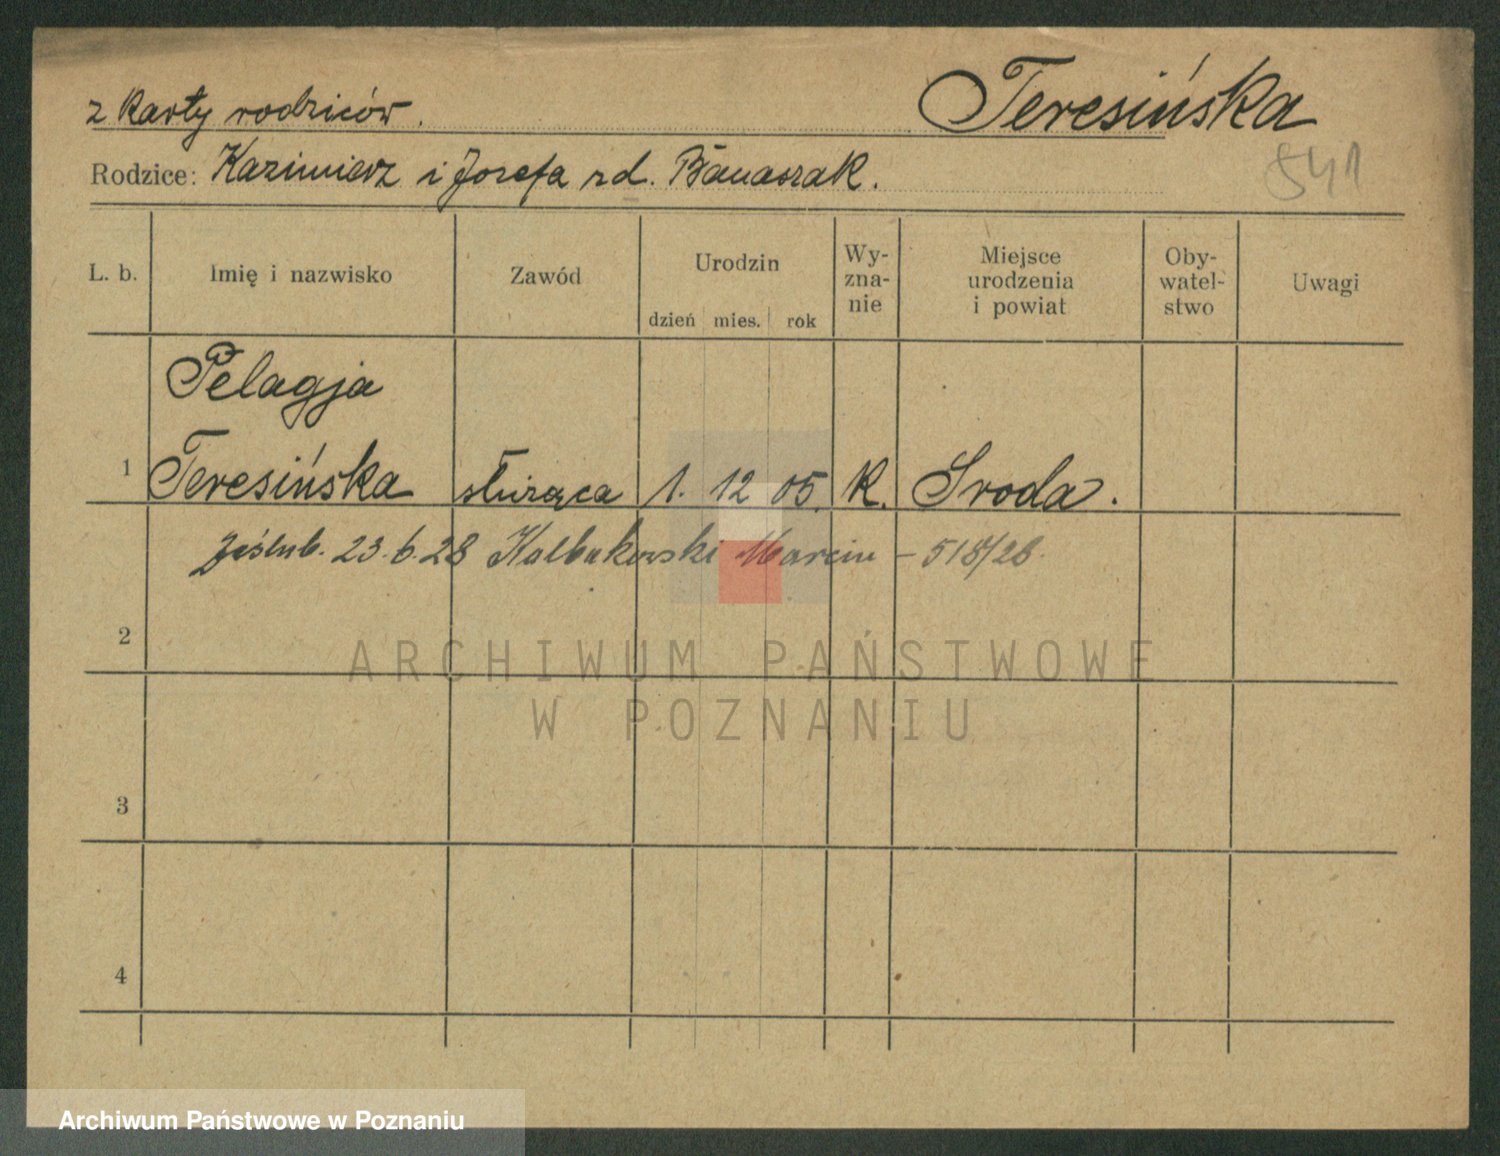 z karty rodziców. Teresińska
Rodzice: Kazimierz i Jozefa zd. Banaszak. 541
L. b. Imię i nazwisko Zawód Urodzin Wy- Miejsce Oby- Uwagi
zna- urodzenia watel-
nie i powiat stwo
dzień mies. rok
Pelagja
1 Teresińska służąca 1. 12 05. K. Sroda.
23.6.28 Kolbukowski Marcin – 518/28.
2
ARCHIWUM PAŃSTWOWE
W POZNANIU
3
4
Archiwum Państwowe w Poznaniu